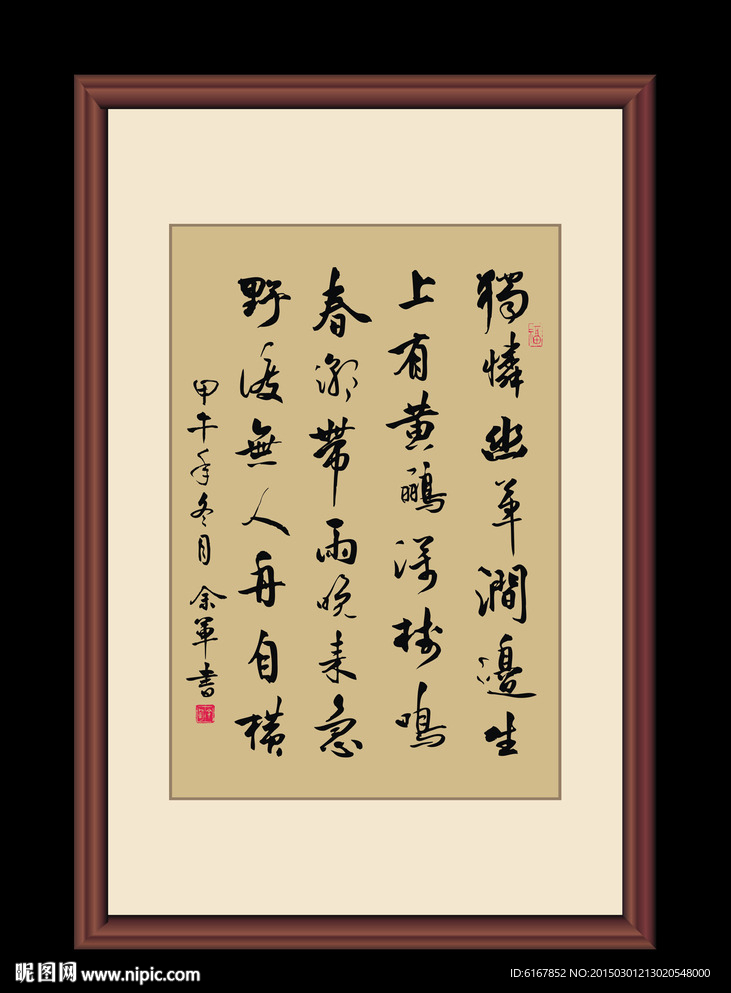 獨憐幽草澗邊生
上有黄鸝深樹鳴
春潮帶雨晚来急
野渡無人舟自横
甲午年冬月 余軍書
昵图网 www.nipic.com
ID:6167852 NO:20150301213020548000